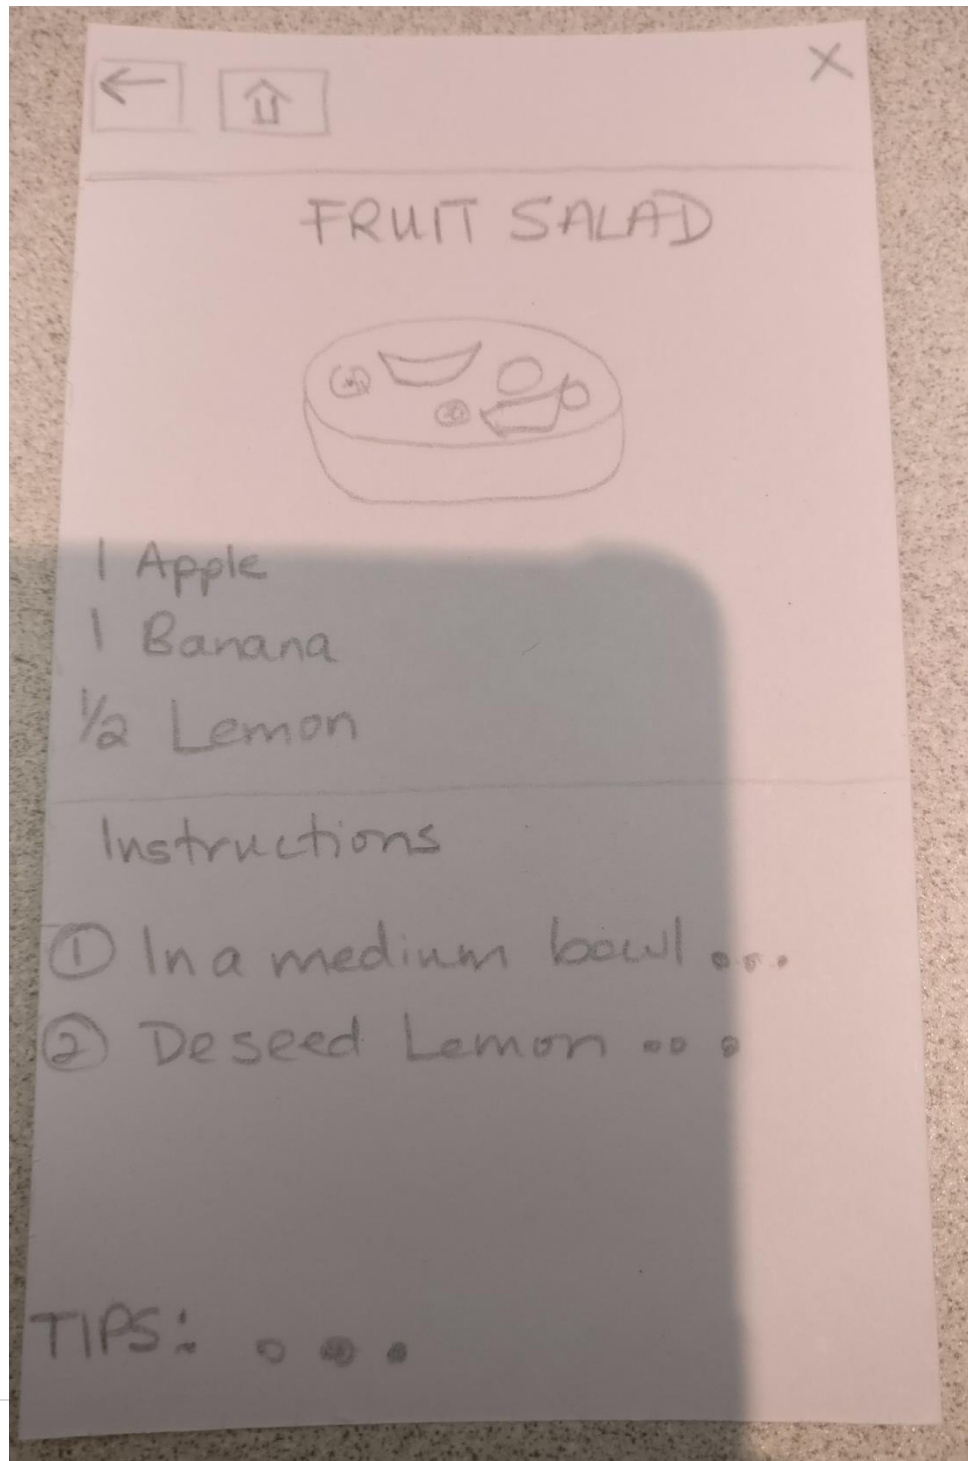 FRUIT SALAD
1 Apple
1 Banana
1/2 Lemon
Instructions
① In a medium bowl ...
② Deseed Lemon ...
TIPS: ...